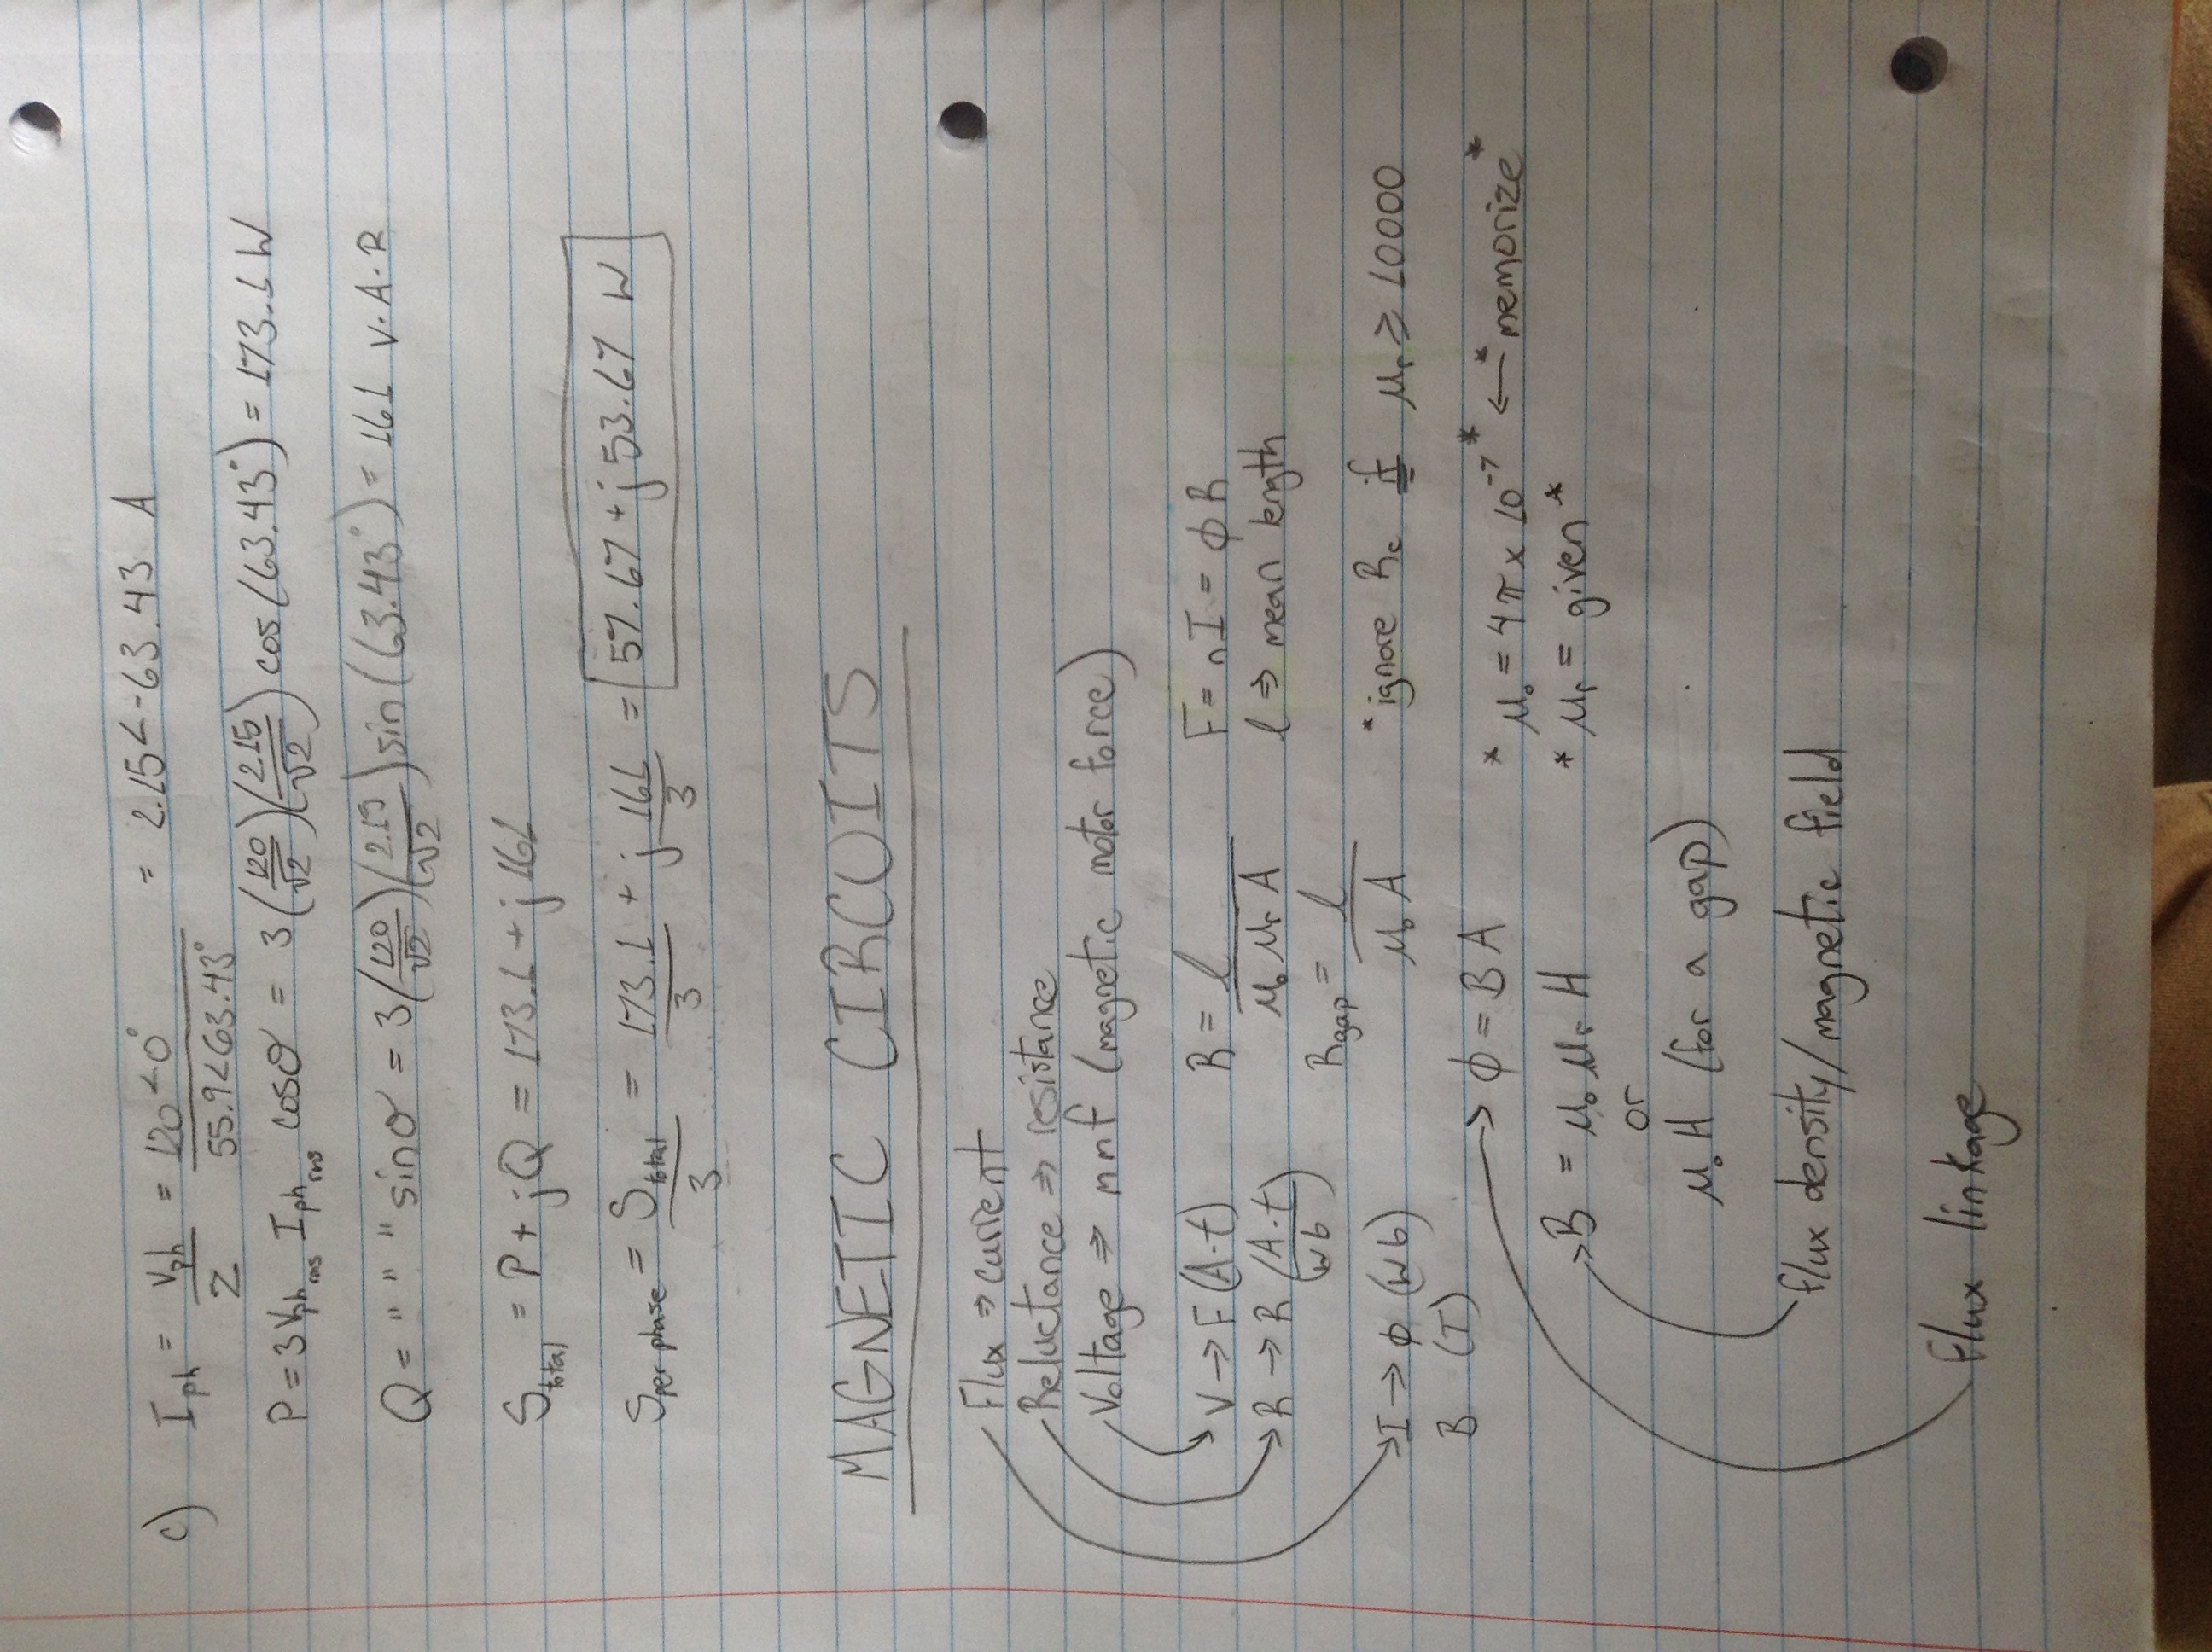 c) I_ph = V_ph / Z = 120<0° / 55.9<63.43° = 2.15<-63.43 A
P = 3V_ph_rms I_ph_rms cosθ = 3(120/√2)(2.15/√2) cos(63.43°) = 173.1 W
Q = " " " sinθ = 3(120/√2)(2.15/√2) sin(63.43°) = 161 V·A·R
S_total = P + jQ = 173.1 + j161
S_per phase = S_total / 3 = 173.1/3 + j 161/3 = 57.67 + j53.67 W
MAGNETIC CIRCUITS
Flux ⇒ current
Reluctance ⇒ resistance
Voltage ⇒ mmf (magnetic motor force)
V → F (A·t) R = l / μ₀ μᵣ A F = nI = ϕR
R → R (A·t / wb) l ⇒ mean length
R_gap = l / μ₀ A
I → ϕ (wb) *ignore R_c if μᵣ ≥ 10000
B (T)
→ ϕ = BA * μ₀ = 4π x 10⁻⁷ * ← *memorize*
→ B = μ₀ μᵣ H * μᵣ = given *
or
μ₀ H (for a gap)
flux density/magnetic field
flux linkage